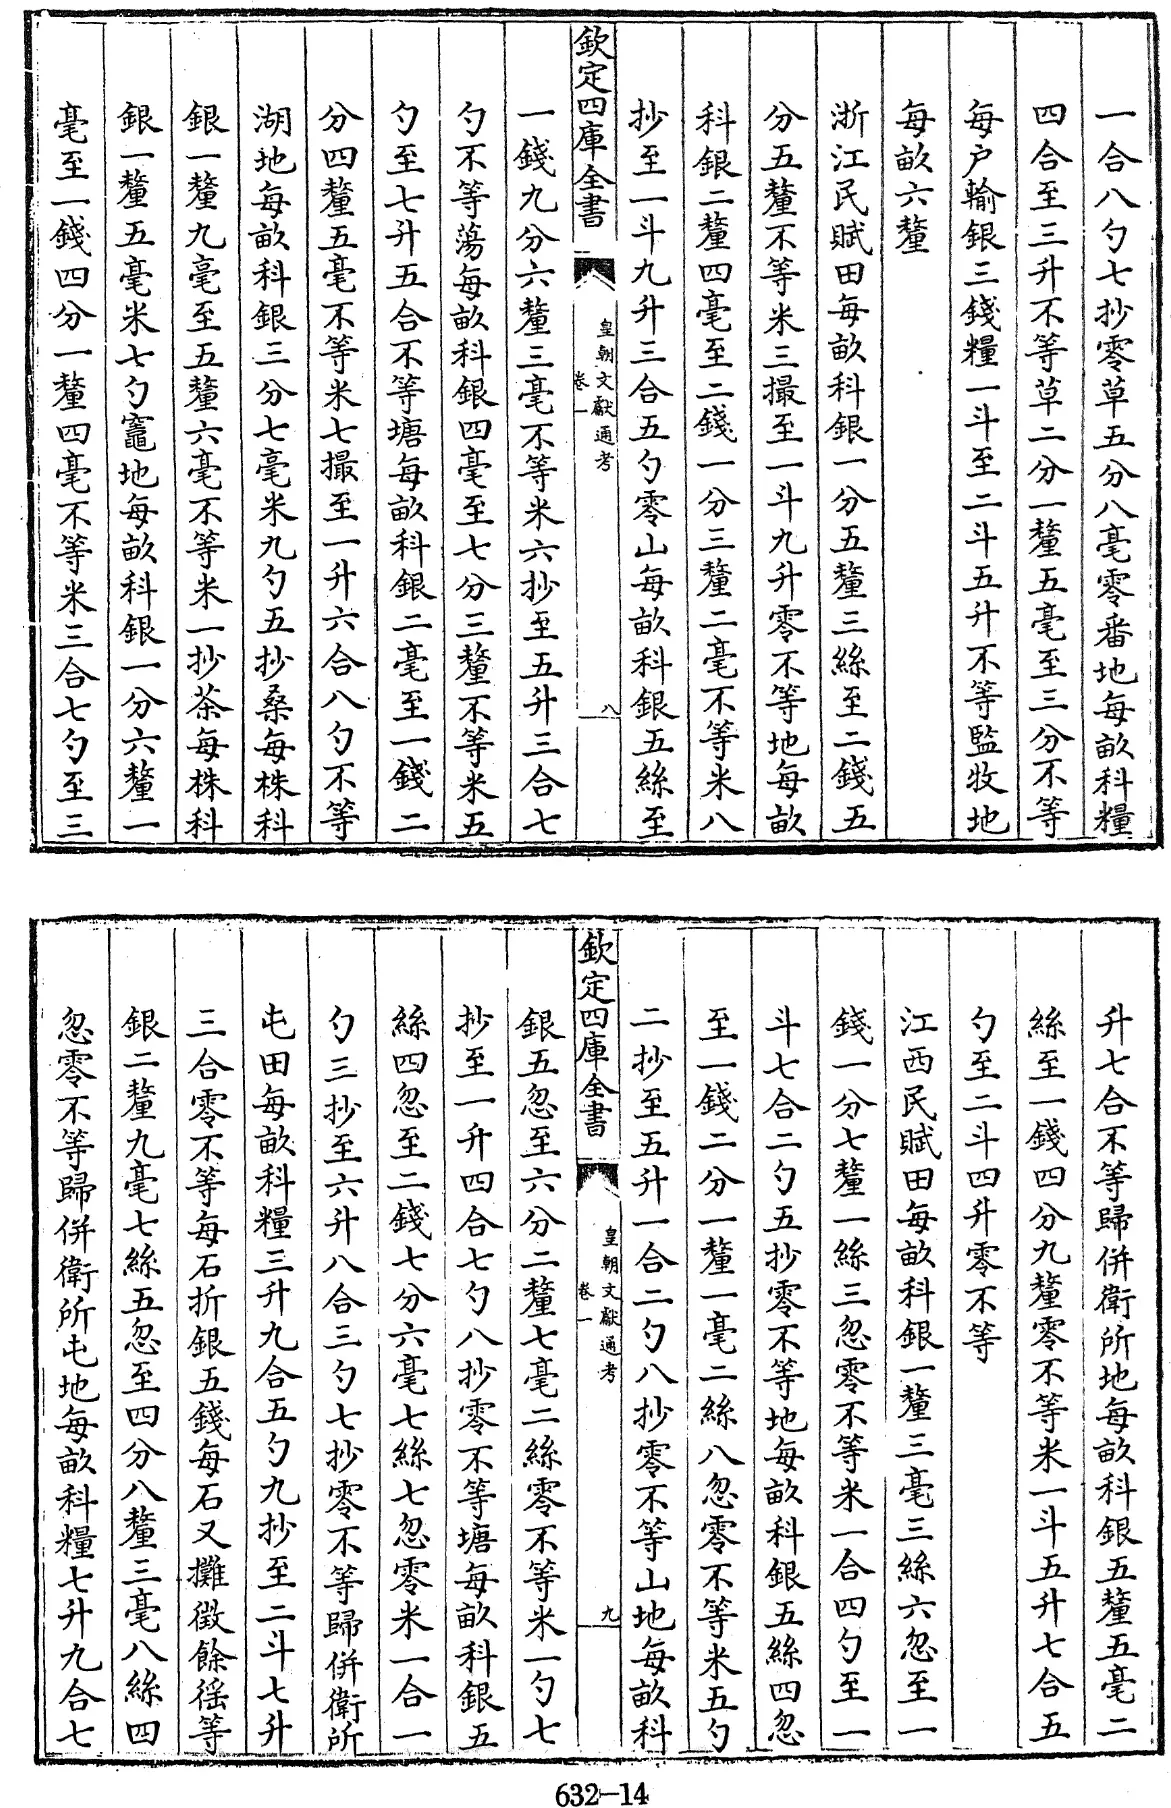 一合八勺七抄零草五分八毫零番地每畝科糧
四合至三升不等草二分一釐五毫至三分不等
每户輸銀三錢糧一斗至二斗五升不等監牧地
每畝六釐
浙江民賦田每畝科銀一分五釐三絲至二錢五
分五釐不等米三撮至一斗九升零不等地每畝
科銀二釐四毫至二錢一分三釐二毫不等米八
抄至一斗九升三合五勺零山每畝科銀五絲至
欽定四庫全書
皇朝文獻通考
卷一
八
一錢九分六釐三毫不等米六抄至五升三合七
勺不等蕩每畝科銀四毫至七分三釐不等米五
勺至七升五合不等塘每畝科銀二毫至一錢二
分四釐五毫不等米七撮至一升六合八勺不等
湖地每畝科銀三分七毫米九勺五抄桑每株科
銀一釐九毫至五釐六毫不等米一抄茶每株科
銀一釐五毫米七勺竈地每畝科銀一分六釐一
毫至一錢四分一釐四毫不等米三合七勺至三
升七合不等歸併衛所地每畝科銀五釐五毫二
絲至一錢四分九釐零不等米一斗五升七合五
勺至二斗四升零不等
江西民賦田每畝科銀一釐三毫三絲六忽至一
錢一分七釐一絲三忽零不等米一合四勺至一
斗七合二勺五抄零不等地每畝科銀五絲四忽
至一錢二分一釐一毫二絲八忽零不等米五勺
二抄至五升一合二勺八抄零不等山地每畝科
欽定四庫全書
皇朝文獻通考
卷一
九
銀五忽至六分二釐七毫二絲零不等米一勺七
抄至一升四合七勺八抄零不等塘每畝科銀五
絲四忽至二錢七分六毫七絲七忽零米一合一
勺三抄至六升八合三勺七抄零不等歸併衛所
屯田每畝科糧三升九合五勺九抄至二斗七升
三合零不等每石折銀五錢每石又攤徵餘徭等
銀二釐九毫七絲五忽至四分八釐三毫八絲四
忽零不等歸併衛所屯地每畝科糧七升九合七
632-14